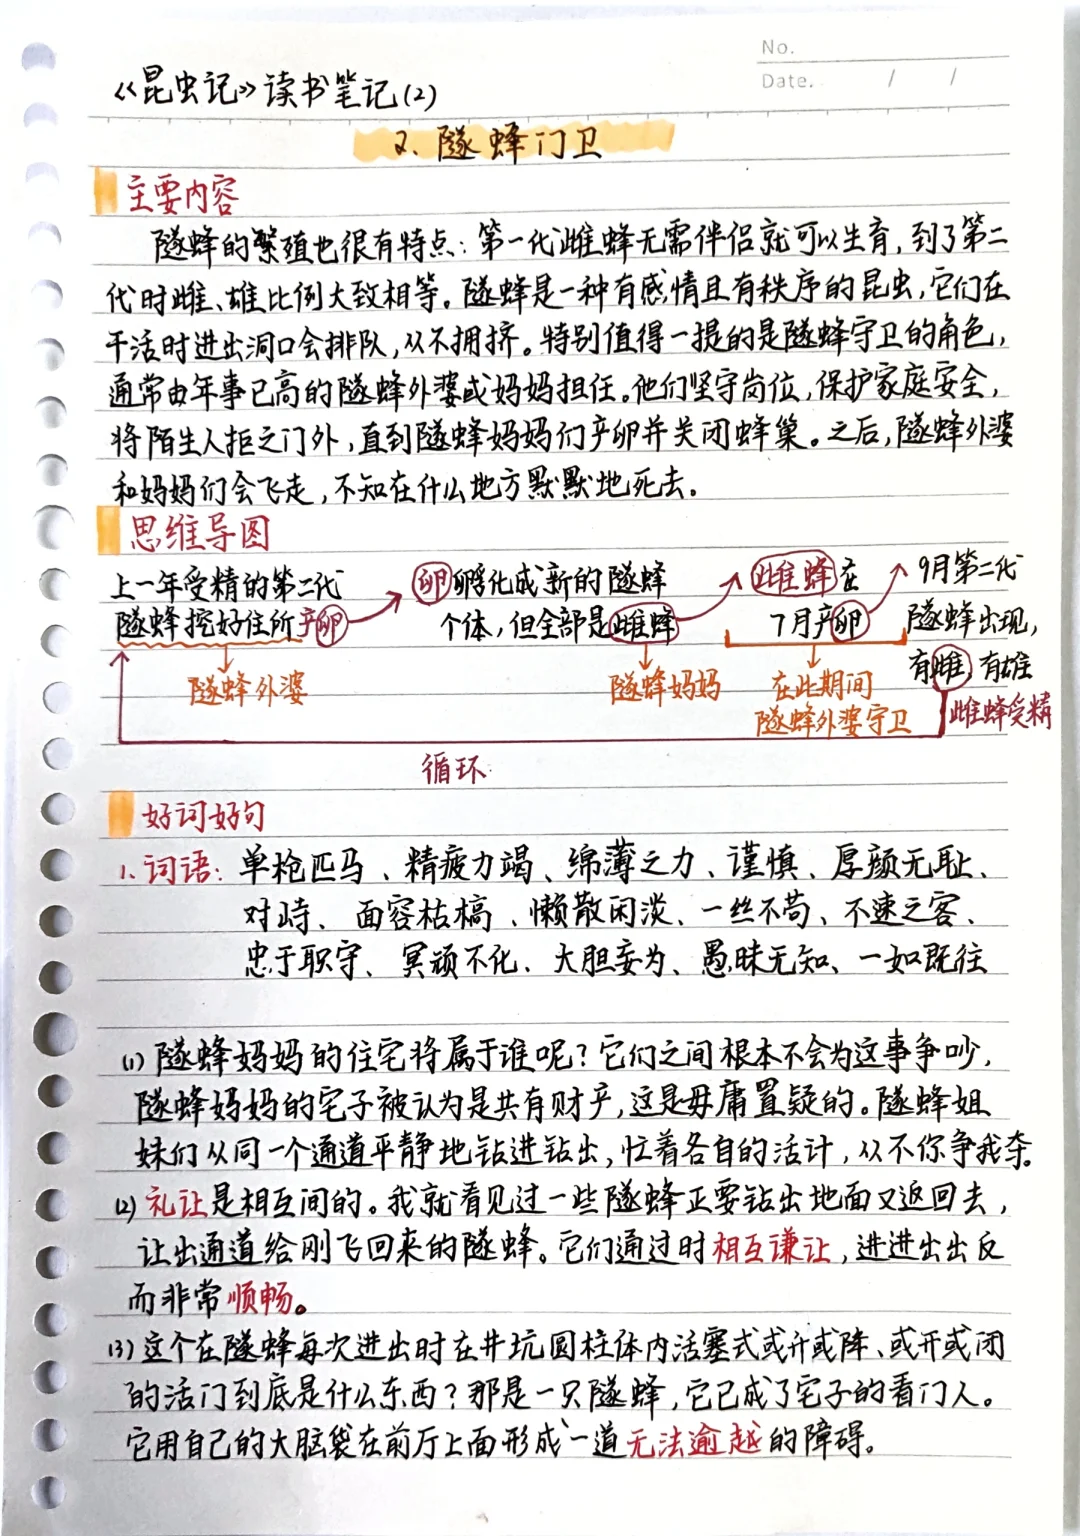 No.
Date. / /
《昆虫记》读书笔记(2)
2. 隧蜂门卫
主要内容
隧蜂的繁殖也很有特点:第一代雌蜂无需伴侣就可以生育,到了第二
代时雌、雄比例大致相等。隧蜂是一种有感情且有秩序的昆虫,它们在
干活时进出洞口会排队,从不拥挤。特别值得一提的是隧蜂守卫的角色,
通常由年事已高的隧蜂外婆或妈妈担任。他们坚守岗位,保护家庭安全,
将陌生人拒之门外,直到隧蜂妈妈们产卵并关闭蜂巢。之后,隧蜂外婆
和妈妈们会飞走,不知在什么地方默默地死去。
思维导图
上一年受精的第二代
隧蜂挖好住所产卵
隧蜂外婆
卵孵化成新的隧蜂
个体,但全部是雌蜂
隧蜂妈妈
雌蜂在
7月产卵
在此期间
隧蜂外婆守卫
9月第二代
隧蜂出现,
有雌,有雄
雌蜂受精
循环
好词好句
1、词语:单枪匹马、精疲力竭、绵薄之力、谨慎、厚颜无耻、
对峙、面容枯槁、懒散闲淡、一丝不苟、不速之客、
忠于职守、冥顽不化、大胆妄为、愚昧无知、一如既往
(1) 隧蜂妈妈的住宅将属于谁呢?它们之间根本不会为这事争吵,
隧蜂妈妈的宅子被认为是共有财产,这是毋庸置疑的。隧蜂姐
妹们从同一个通道平静地钻进钻出,忙着各自的活计,从不你争我夺。
(2) 礼让是相互间的。我就看见过一些隧蜂正要钻出地面又返回去,
让出通道给刚飞回来的隧蜂。它们通过时相互谦让,进进出出反
而非常顺畅。
(3) 这个在隧蜂每次进出时在井坑圆柱体内活塞式或升或降、或开或闭
的活门到底是什么东西?那是一只隧蜂,它已成了宅子的看门人。
它用自己的大脑袋在前厅上面形成一道无法逾越的障碍。